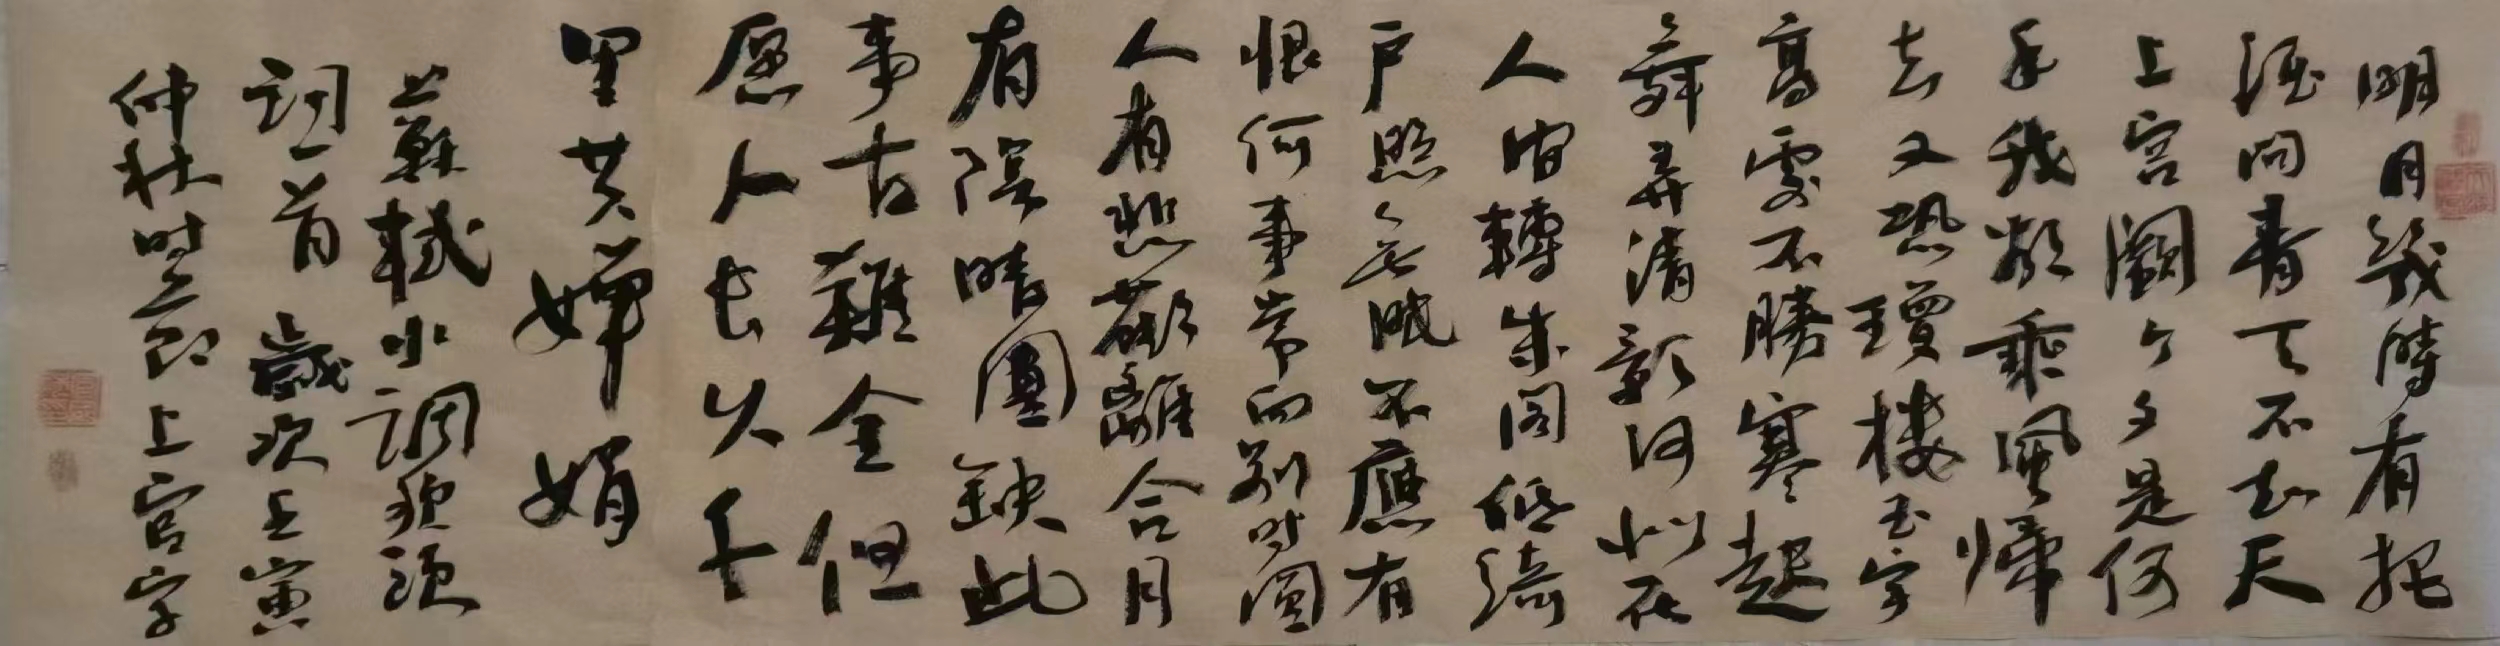 明月幾時有把
酒問青天不知天
上宮闕今夕是何
年我欲乘風歸
去又恐瓊樓玉宇
高處不勝寒起
舞弄清影何似在
人間轉朱閣低綺
戶照無眠不應有
恨何事常向別時圓
人有悲歡離合月
有陰晴圓缺此
事古難全但
愿人長久千
里共嬋娟
蘇軾水調歌頭
詞一首歲次壬寅
仲秋時節上官